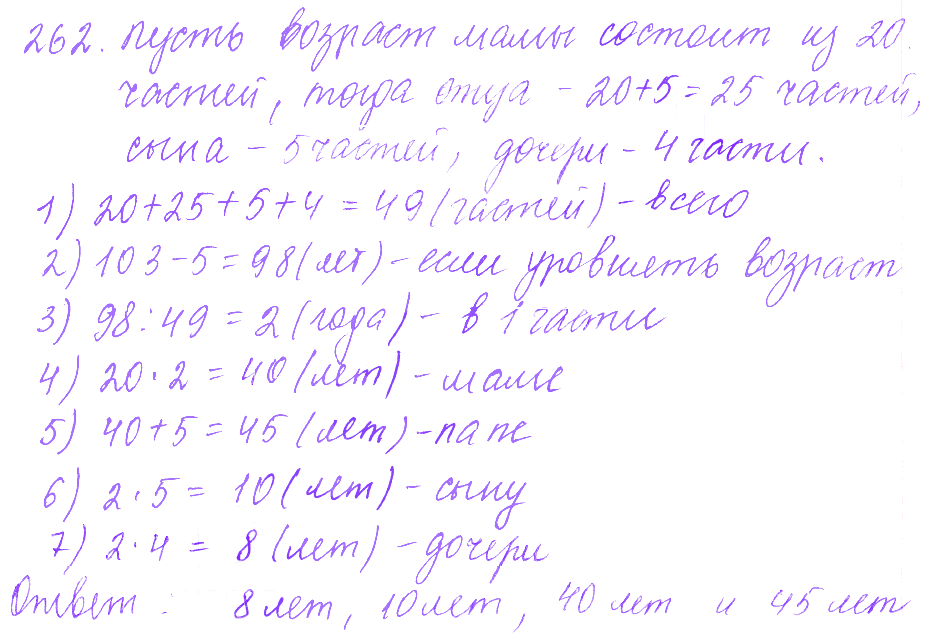 262. Пусть возраст мамы состоит из 20
частей, тогда отца - 20+5=25 частей,
сына - 5 частей, дочери - 4 части.
1) 20+25+5+4 = 49 (частей) - всего
2) 103-5=98 (лет) - если уровнять возраст
3) 98:49 = 2 (года) - в 1 части
4) 20·2 = 40 (лет) - маме
5) 40+5=45 (лет) - папе
6) 2·5 = 10 (лет) - сыну
7) 2·4 = 8 (лет) - дочери
Ответ: 8 лет, 10 лет, 40 лет и 45 лет